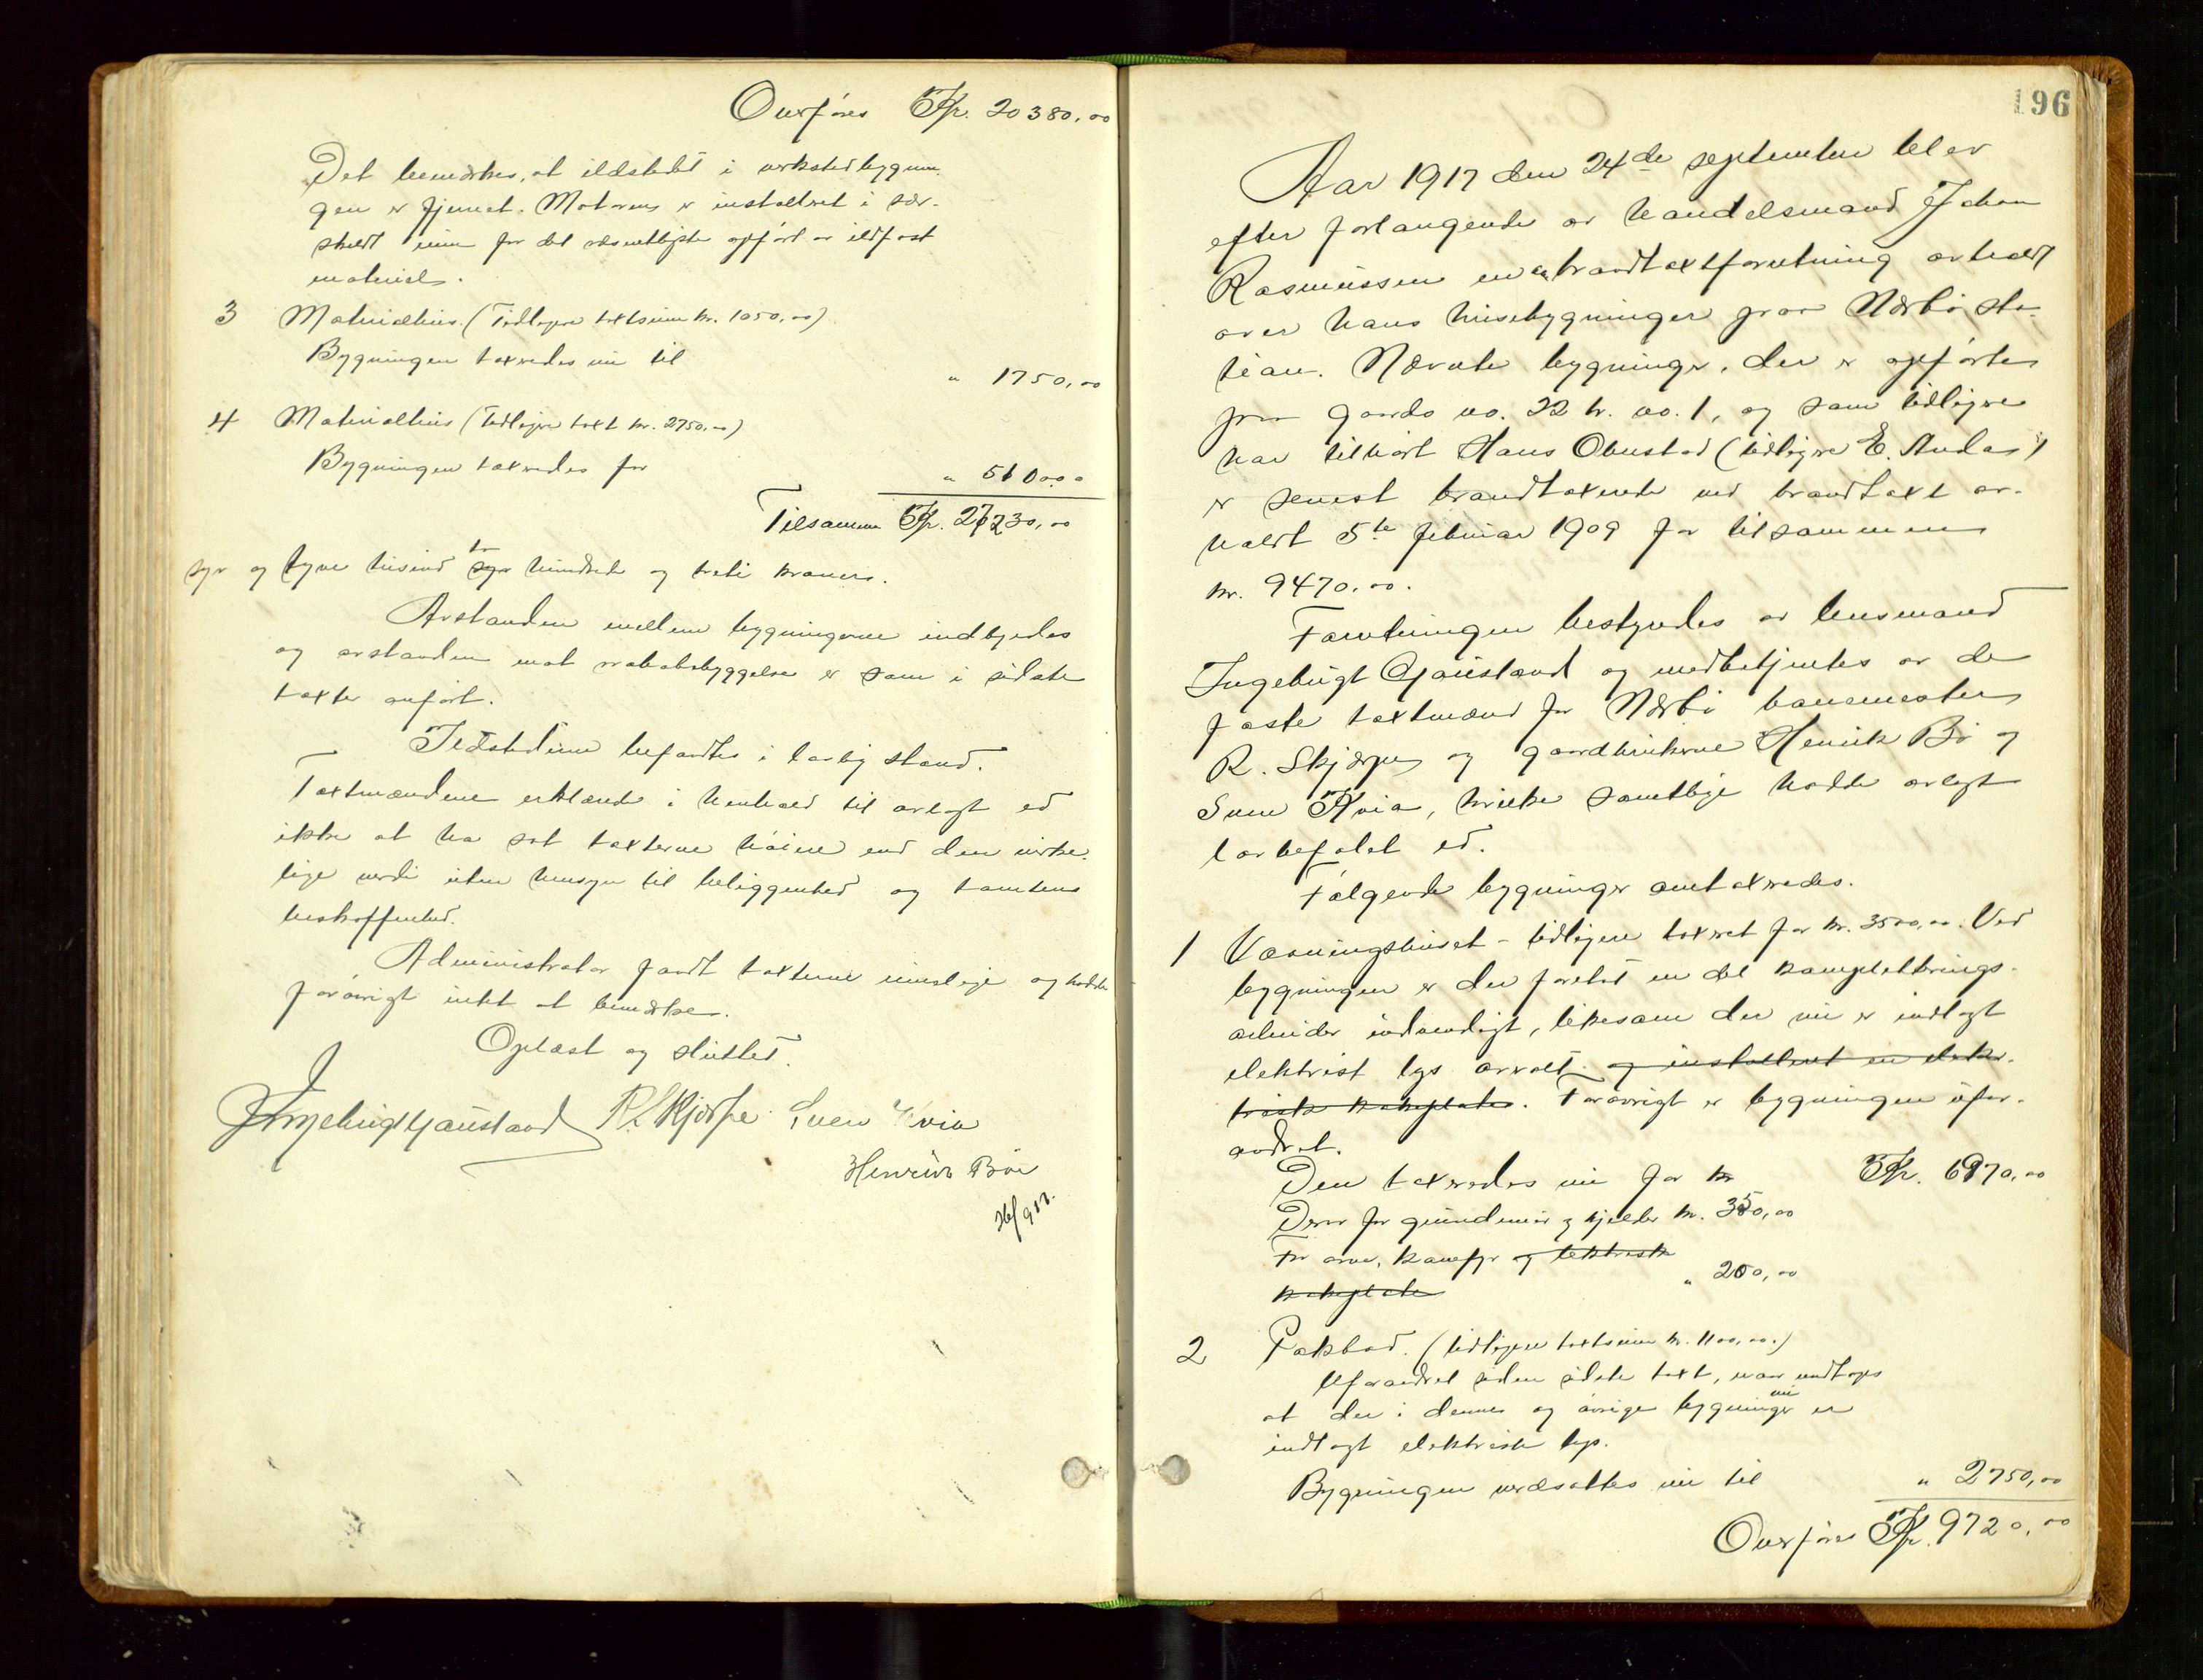 Overføres Kr. 20380,00
Det bemerkes, at ildstedet i verkstedbygnin-
gen er fjernet. Motoren er installeret i sær-
skildt rum for det væsentligste opført av ildfast
materiel.
3 Materialhus. (Tidligere takstsum kr. 1050,00)
Bygningen taxeredes nu til
" 1750,00
4 Materialhus (Tidligere taxt kr. 2750,00)
Bygningen taxeredes for
" 5100,00
Tilsammen Kr. 27230,00
syv og tyve tusind to syv hundrede og treti kroner.
Avstanden mellem bygningerne indbyrdes
og avstanden mot nabobebyggelse er som i sidste
taxter anført.
Ildstederne befandtes i lovlig stand.
Taxtmændene erklærede i henhold til avlagt ed
ikke at ha sat taxterne høiere end den virke-
lige verdi uten hensyn til beliggenhed og tomtens
beskaffenhed.
Administrator fandt taxterne rimelige og hadde
forøvrigt intet at bemerke.
Oplæst og sluttet.
Ingebrigt Gaustand R Skjærpe Sven Kvia
Henrik Bøe
26/9 17.
196
Aar 1917 den 24de september blev
efter forlangende av handelsmand Johan
Rasmussen en brandtaxtforretning avholdt
over hans husebygninger paa Nærbø sta-
tion. Nævnte bygninger, der er opførte
paa gaards no. 22 br. no. 1, og som tidligere
har tilhørt Hans Obrestad (tidligere E. Andas)
er senest brandtakserede ved brandtaxt av-
holdt 5te februar 1909 for tilsammen
kr. 9470,00.
Forretningen bestyredes av lensmand
Ingebrigt Gaustand og medbetjentes av de
faste taxtmænd for Nærbø banemester
R. Skjærpe og gaardbrukerne Henrik Bø og
Sven Kvia, hvilke samtlige hadde avlagt
lovbefalet ed.
Følgende bygninger omtaxeredes.
1 Vaaningshuset - tidligere taxeret for kr. 3500,00. Ved
bygningen er der foretat en del kompletterings-
arbeider indvendigt, likesom der nu er indlagt
elektrisk lys overalt og installeret en elek-
trisk kokeplate. Forøvrigt er bygningen ufor-
andret.
Den taxeredes nu for kr Kr. 6970,00
Derav for grundmur og kjelder kr. 350,00
For ovne, komfyr og elektrisk
kokeplate " 200,00
2 Pakbod. (tidligere taxtsum kr. 1100,00.)
Uforandret siden sidste taxt, naar undtages
at der i denne og øvrige bygninger nu er
indlagt elektrisk lys.
Bygningen verdsattes nu til
" 2750,00
Overføres Kr. 9720,00